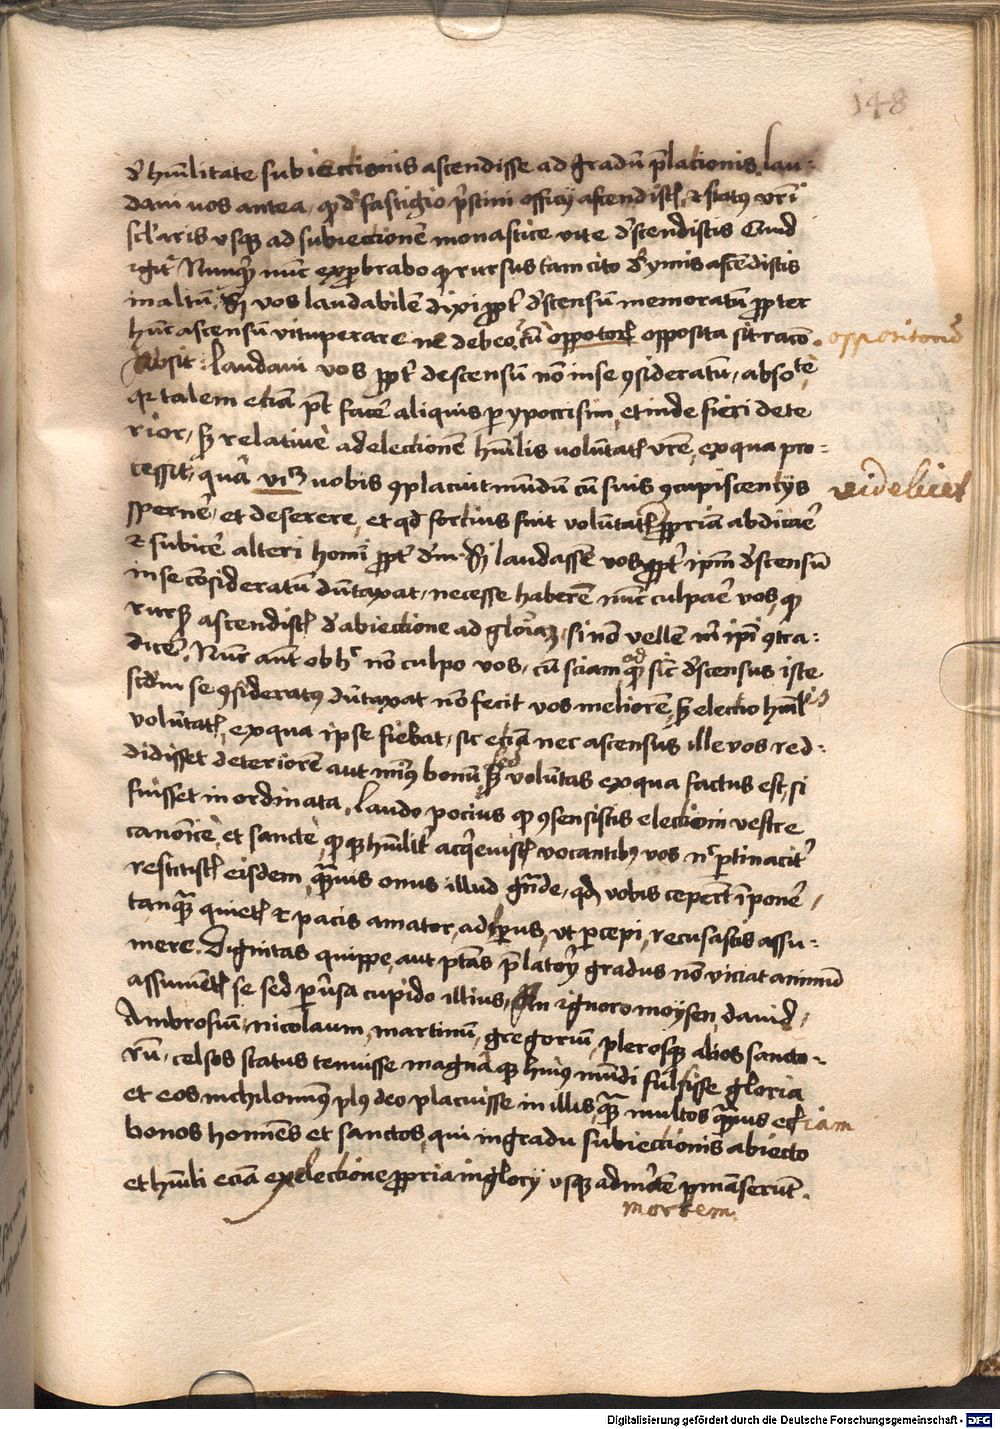 148
de hūilitate subiectionis ascendisse ad gradū p̄lationis. lau-
daui uos antea, qꝫ de fastigio p̄stini officij aſcendistꝭ, et status vr̄i
scl̓aris vsqꝫ ad subiectionē monastice vite descendistis Quid
igitʳ Nunqͥd nūc exprobrabo qꝫ rursus tam cito de ymis ascēdistis
in altū. Si vos laudabilē dixi ꝓpt̓ descensū memoratū ꝓpter
hūc ascensū vituperare ne debeo, cū oppotorꝭ opposita sit racō.
oppositorū
Absit. laudaui vos ꝓpt̓ descensū non in se ꝯsideratū, absote
qꝛ talem eciā pt̄ facē aliquis per ypocrisim, et inde fieri dete
rior, sꝫ relatiue ad electionē hūilis volūtatꝭ vr̄e, ex qua pro-
cessit, quā vꝫ uobis ꝯplacuit mūdū cū suis ꝯcupiscencijs
videlicet
sperne̓, et deserere, et qd̓ forcius fuit volūtatē ꝓpriā abdicae̓
et subice̓ alteri homi ꝓpt̓ dm̄. Si laudassē vos ꝓpt̓ ipm̄ descensū
in se cōsideratū dūtaxat, necesse haberē nūc culpae̓ vos, qꝫ
rursꝫ ascendistꝭ de abiectione ad gloriaꝫ, si nō vellē m̄ ipī ꝯtra-
dice̓. Nūc aūt ob hͦ nō culpo vos, cū sciam qꝫ sic̄ descensus iste
quod
scd̓m se ꝯsideratus dūtaxat nō fecit vos meliorē, sꝫ electio hūil̓is
volūtatꝭ, ex qua ipse fiebat, sic eciā nec ascensus ille vos red-
didisset deteriorē aut minꝰ bonū, sꝫ volūtas ex qua factus est, si
sed
fuisset inordinata, laudo pocius qꝫ ꝯsensistis electioni vestre
canonice, et sancte, qꝫ qꝫ hūilit̓ acq̓euistꝭ vocantibꝰ vos nͨ ꝑtinacit̓
restitistꝭ eisdem, qͣuis onus illud gn̄de, qd̓ vobis ceperūt īpone̓,
tanqͣ quietꝭ et pacis amator, ad tp̄us, vt percepi, recusastis assu-
mere. Dignitas quippe, aut ptās p̄latoꝝ gradus non viciat animū
assumētꝭ se sed peruersa cupido illius, An ignoro moysen, dauid,
Ambrosiū, nicolaum, martinū, gregoriū, plerosqꝫ alios sancto-
rū, celsos status tenuisse magnāqꝫ huiꝰ mūdi fulsisse gloria
et eos nichilominꝰ plꝰ deo placuisse in illis, qͣ multos qͣuis eciam
bonos homīes et sanctos, qui in gradu subiectionis abiecto
et hūili eciā ex electione ꝓpria inglorij vsqꝫ ad mortē ꝑmāserūt.
mortem.
Digitalisierung gefördert durch die Deutsche Forschungsgemeinschaft - DFG